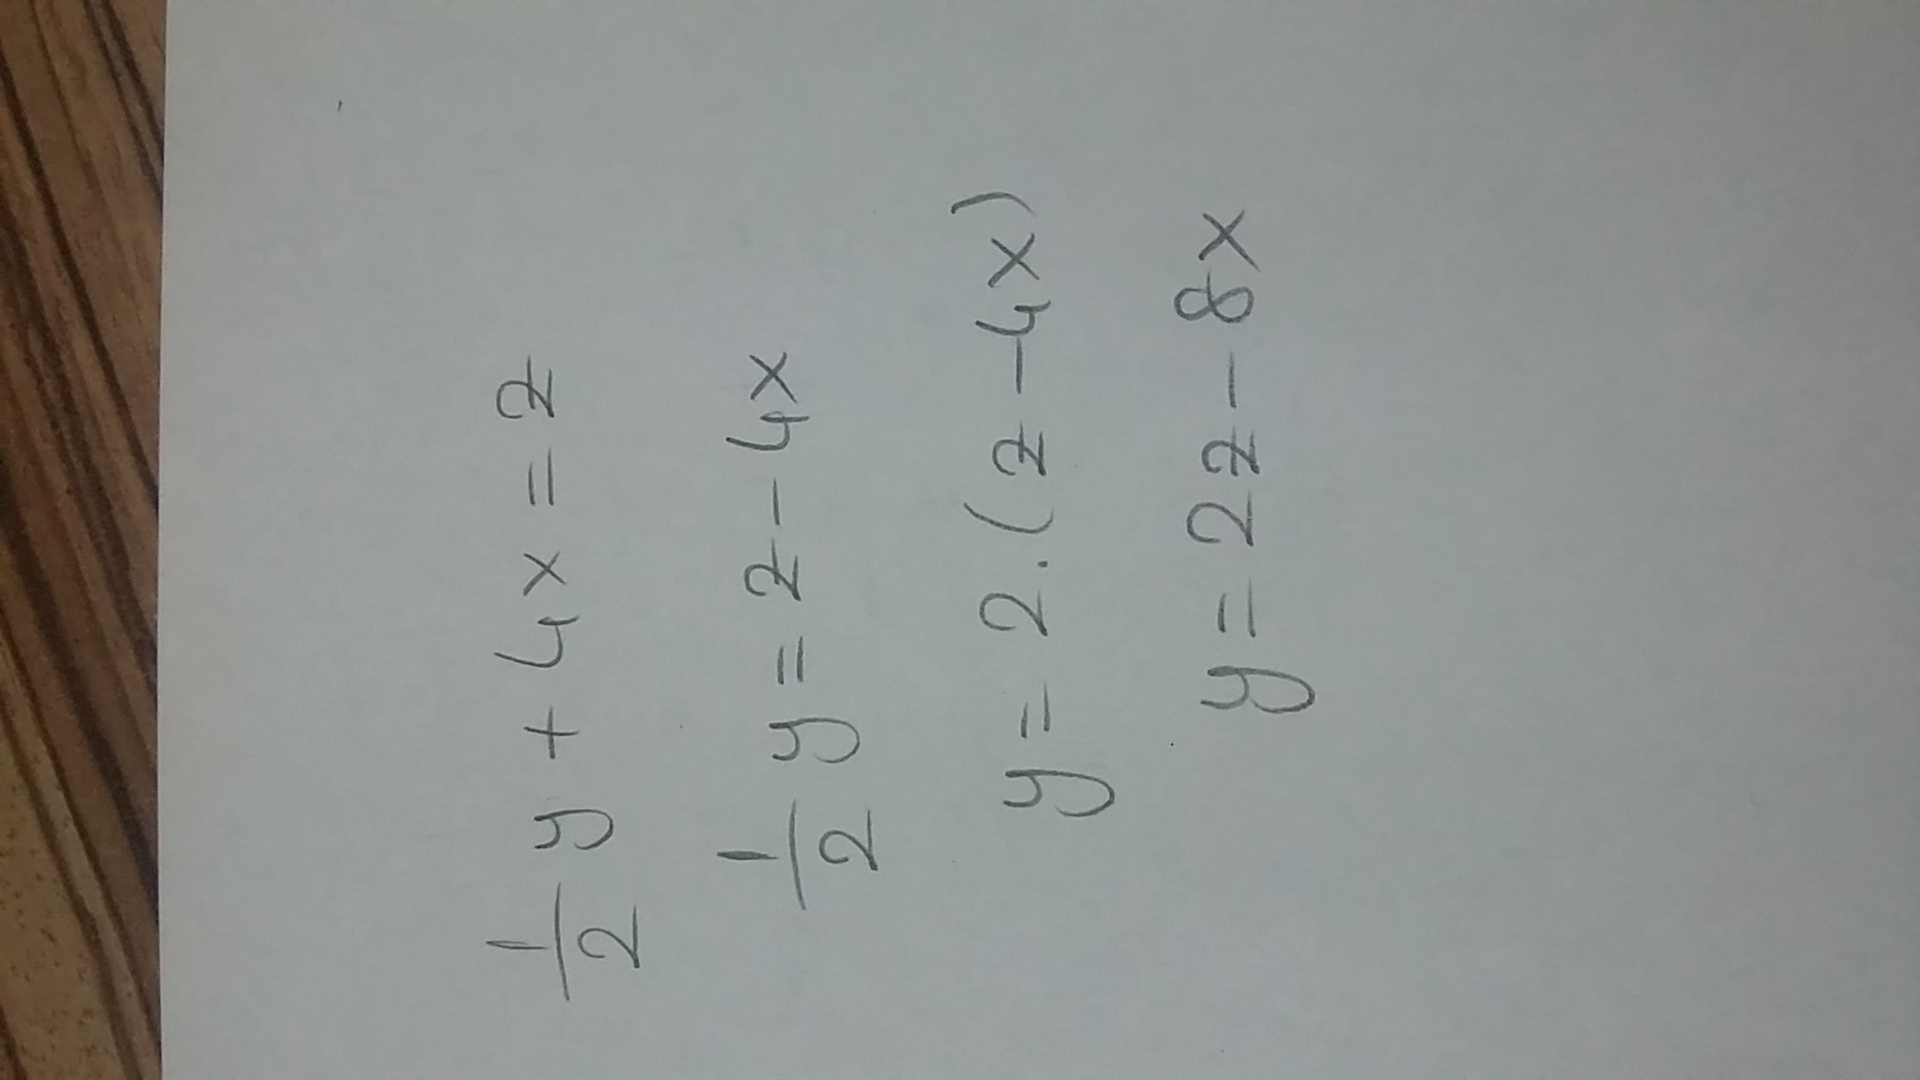 1/2 y + 4x = z
1/2 y = z - 4x
y = 2 . (z - 4x)
y = 2z - 8x